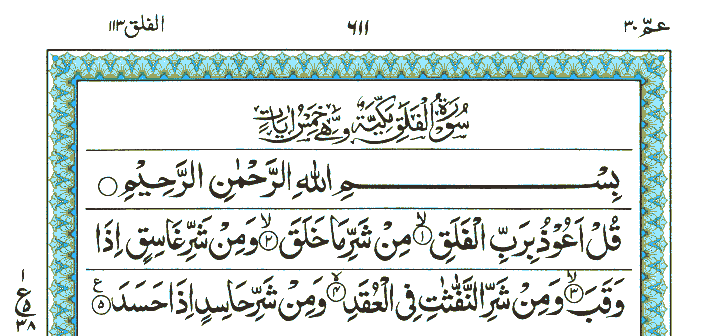 عمّ ٣٠ ٦١١ الفلق ١١٣
سُوْرَةُ الْفَلَقِ مَكِّيَّةٌ وَّهِيَ خَمْسُ اٰيَاتٍ
بِسْــــــــمِ اللهِ الرَّحْمٰنِ الرَّحِيْمِ ○
قُلْ اَعُوْذُ بِرَبِّ الْفَلَقِ ۙ﴿١﴾ مِنْ شَرِّ مَا خَلَقَ ۙ﴿٢﴾ وَمِنْ شَرِّ غَاسِقٍ اِذَا
وَقَبَ ۙ﴿٣﴾ وَمِنْ شَرِّ النَّفّٰثٰتِ فِي الْعُقَدِ ۙ﴿٤﴾ وَمِنْ شَرِّ حَاسِدٍ اِذَا حَسَدَ ﴿٥﴾ ع
١
ع
٥
٣٨